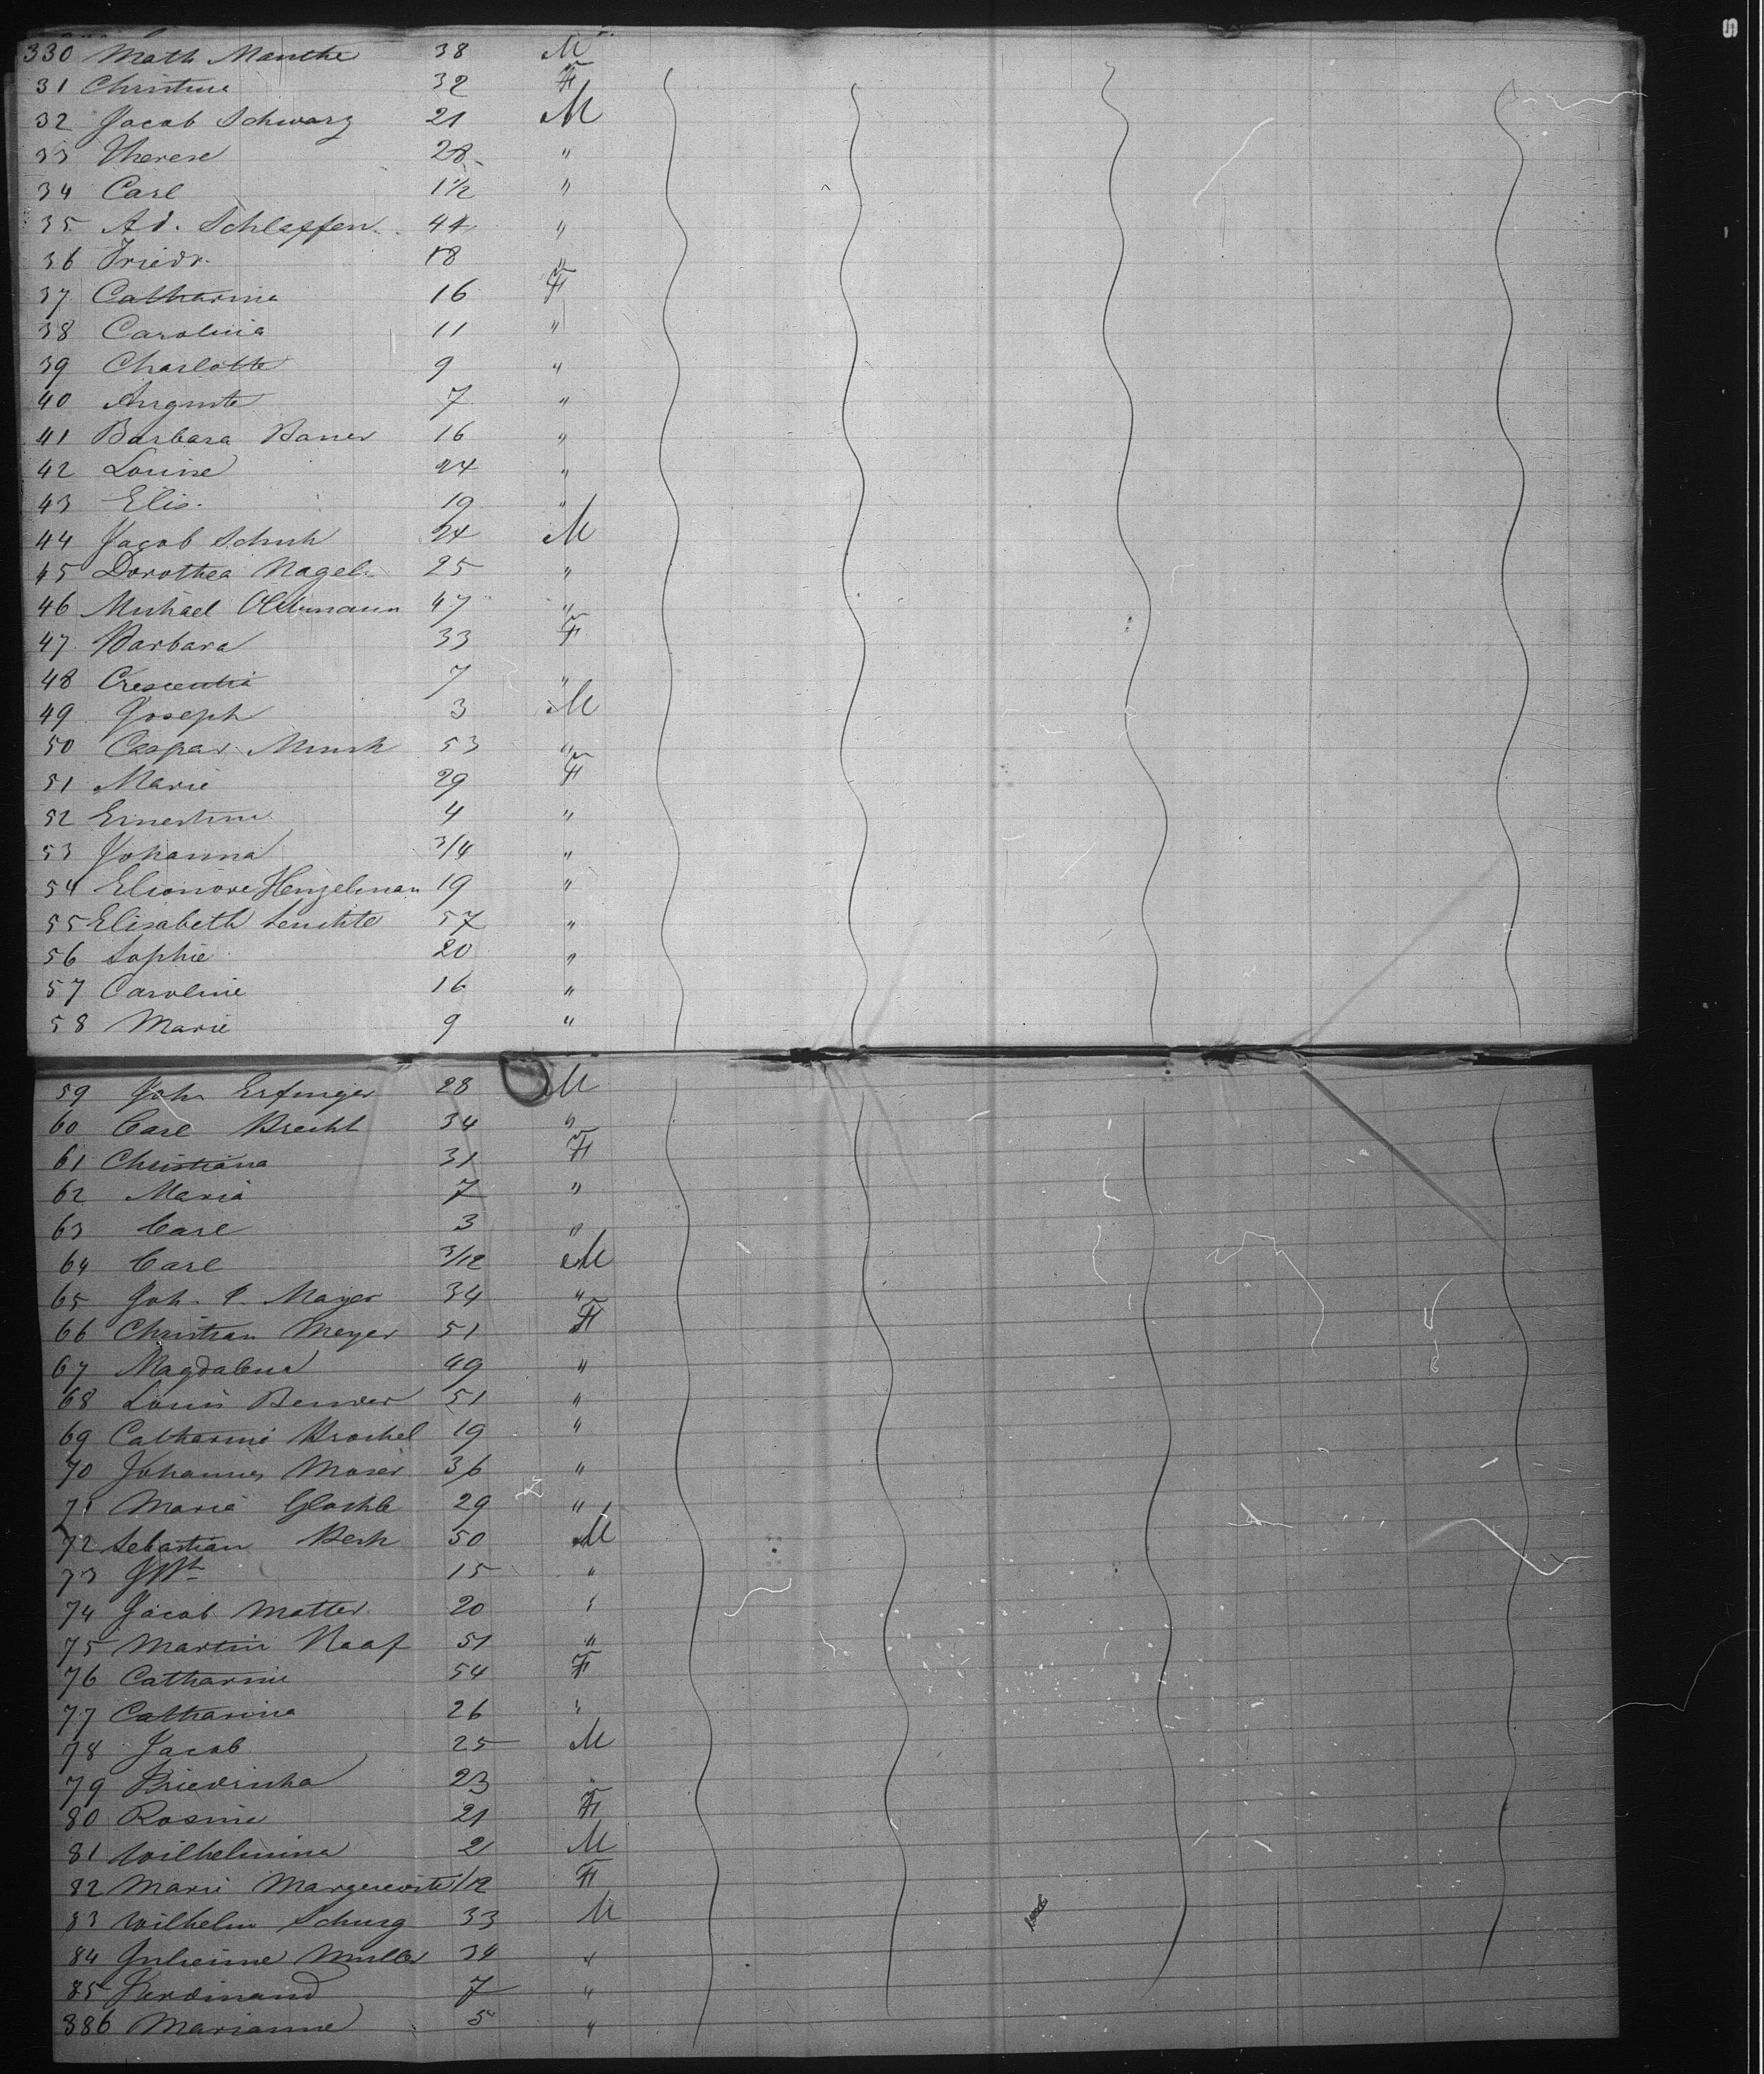 330 Math Manthe 38 M
31 Christine 32 F
32 Jacob Schwarz 21 M
33 Therese 28 "
34 Carl 1 1/2 "
35 Ad. Schlaffen 44 "
36 Friedr. 18 "
37 Catharina 16 F
38 Carolina 11 "
39 Charlotte 9 "
40 Auguste 7 "
41 Barbara Bauer 16 "
42 Louise 24 "
43 Elis. 19 "
44 Jacob Schuh 24 M
45 Dorothea Nagel 25 "
46 Michael 47 "
47 Barbara 33 F
48 Crescentia 7 "
49 Joseph 3 M
50 Caspar Munk 53 "
51 Marie 29 F
52 Ernestine 4 "
53 Johanna 3/4 "
54 Elionore Henzelman 19 "
55 Elisabeth Leuchte 57 "
56 Sophie 20 "
57 Caroline 16 "
58 Marie 9 "
59 Joh. Erfinger 28 M
60 Carl Brecht 34 "
61 Christiana 31 F
62 Maria 7 "
63 Carl 3 "
64 Carl 3/12 M
65 Joh. C. Mayer 34 "
66 Christian Meyer 51 F
67 Magdalena 49 "
68 Louis Benver 51 "
69 Catharine Brochel 19 "
70 Johannes Moser 36 "
71 Maria 29 "
72 Sebastian Besh 50 M
73 15 "
74 Jacob Matter 20 "
75 Martin Raaf 51 "
76 Catharine 54 F
77 Catharina 26 "
78 Jacob 25 M
79 Friedricka 23 "
80 Rosine 21 F
81 Wilhelmina 21 M
82 Marie 1/12 F
83 Wilhelm Schurg 33 M
84 Julienne Muller 34 "
85 Ferdinand 7 "
386 Marianne 5 "